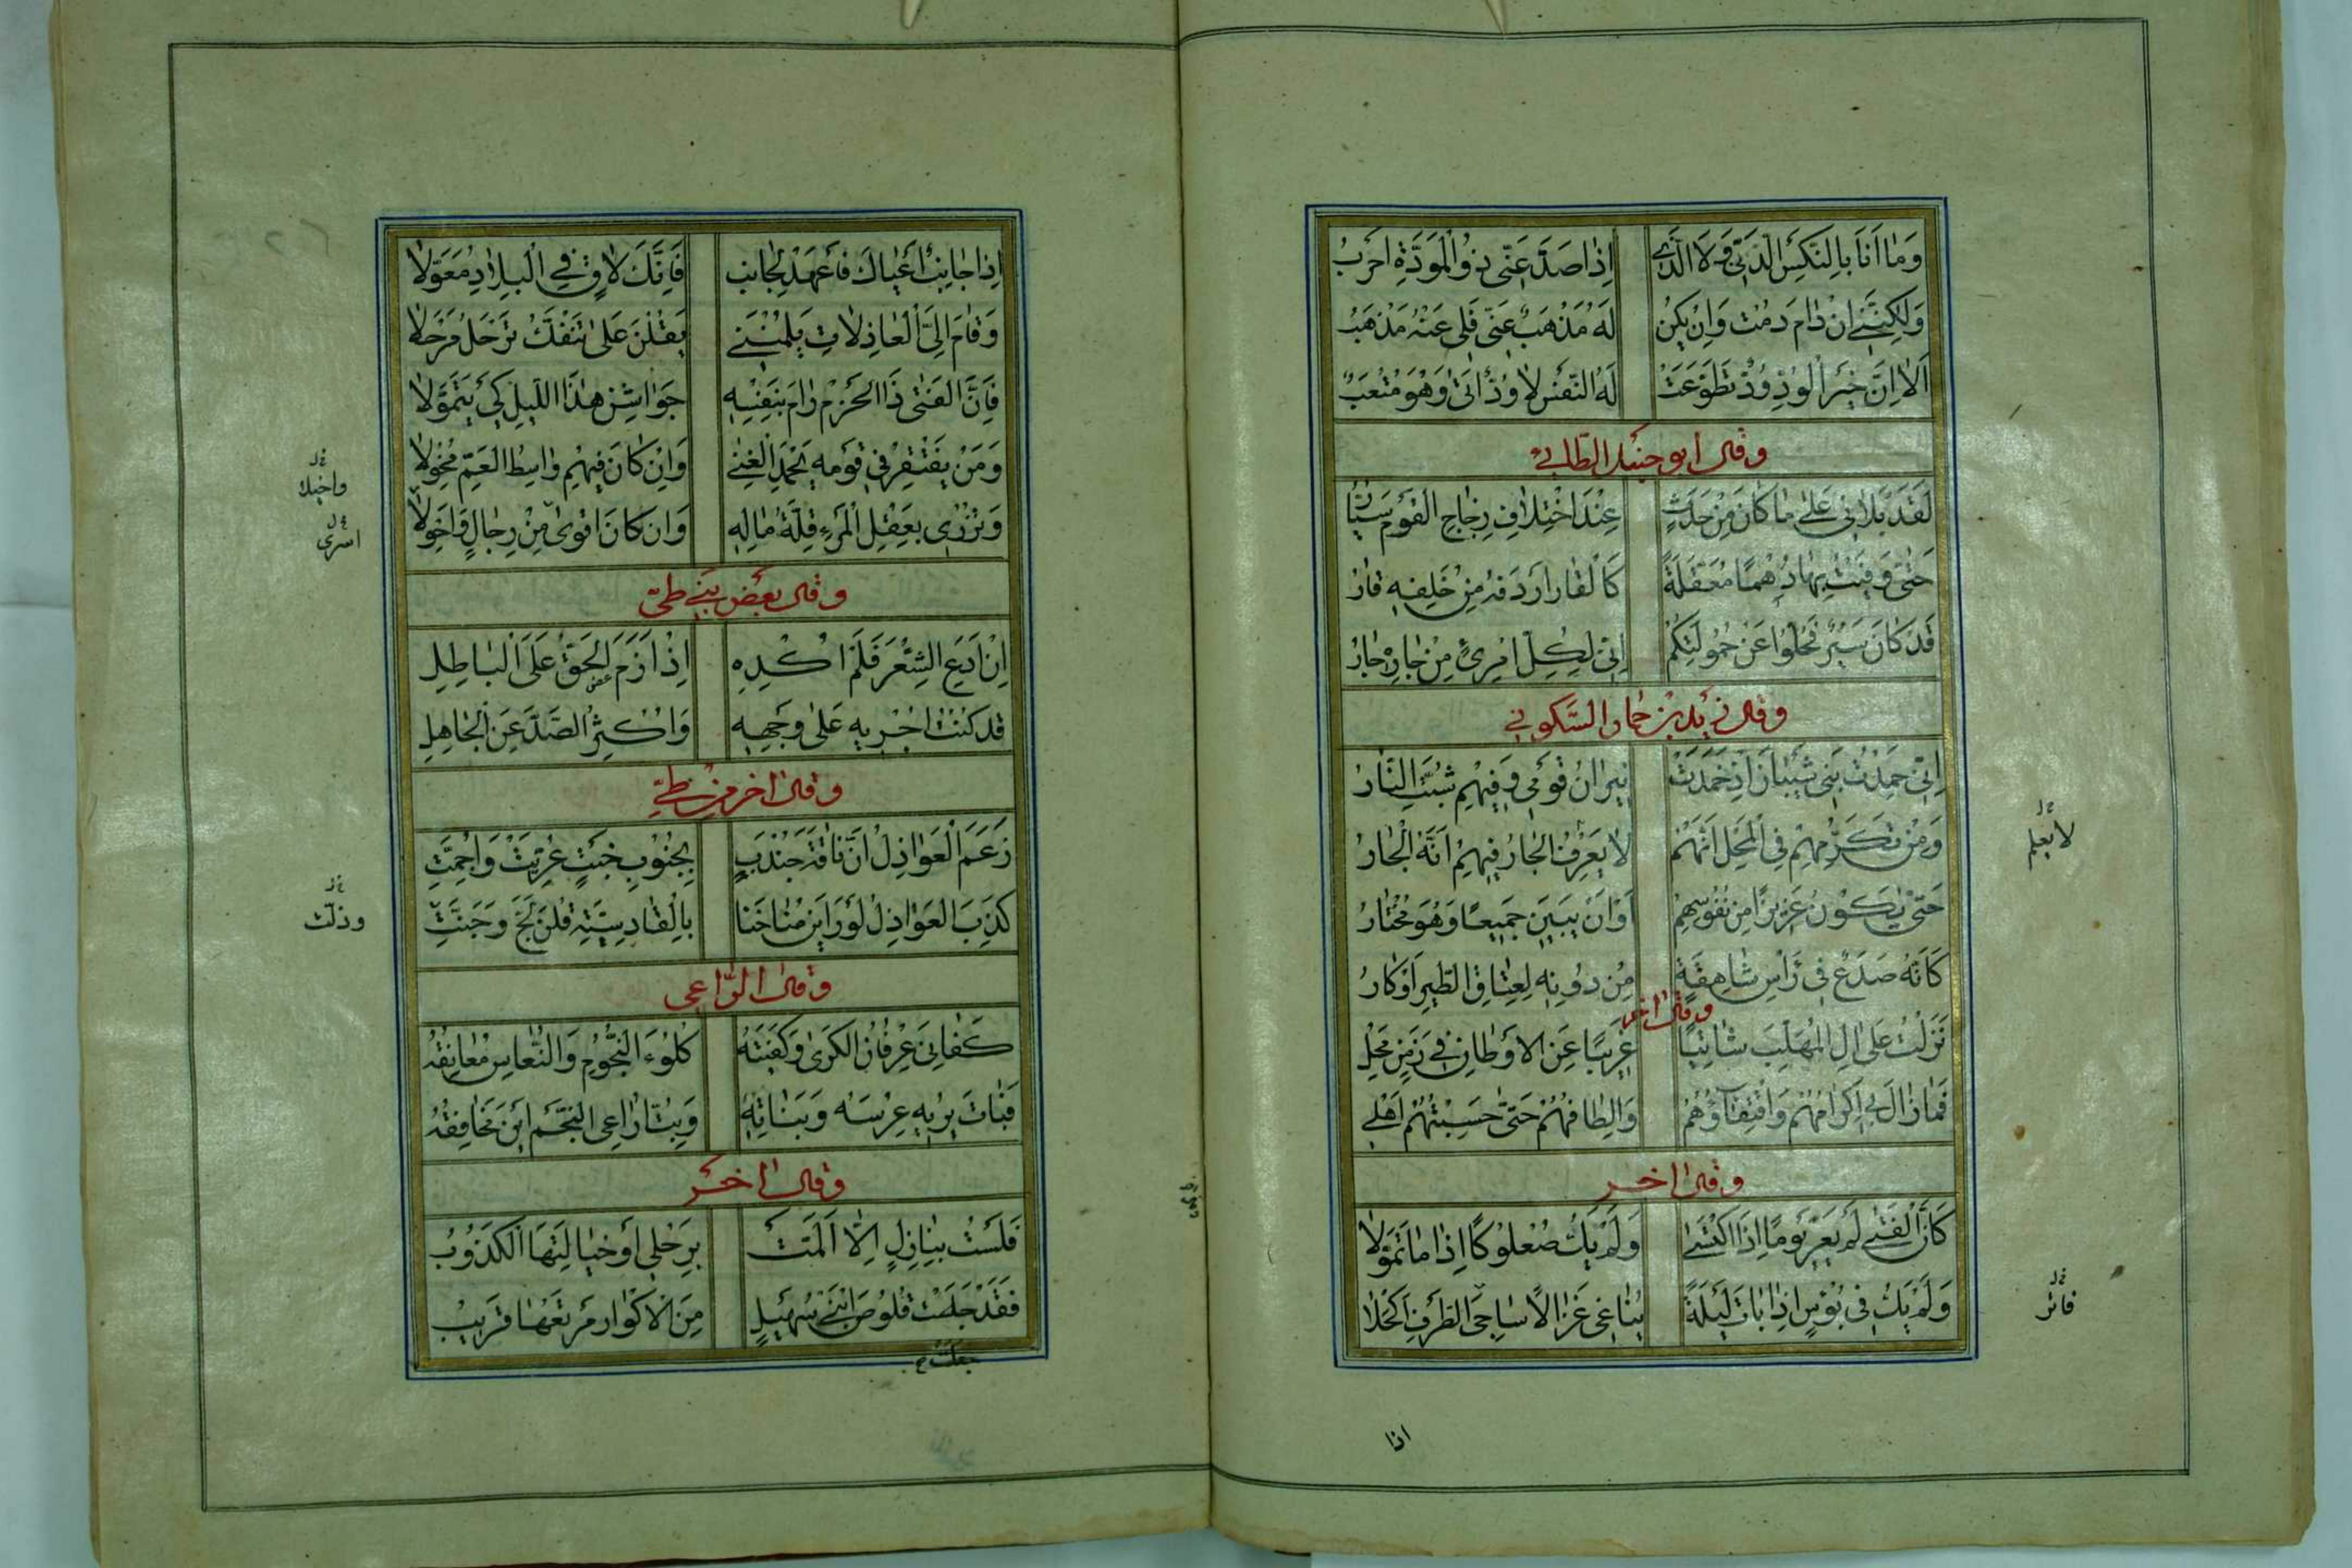 وَمَا اَنَا بِالنَّكْسِ الدَّنِيِّ وَلَا الَّذِي اِذَا صَدَّ عَنِّي ذُو الْمَوَدَّةِ اَحْرَبُ
وَلَكِنَّنِي اِنْ دَامَ دُمْتُ وَاِنْ يَكُنْ لَهُ مَذْهَبٌ عَنِّي فَلِي عَنْهُ مَذْهَبُ
اَلَا اِنَّ خَيْرَ الْوُدِّ وُدٌّ تَطَوَّعَتْ لَهُ النَّفْسُ لَا وُدٌّ اَتَى وَهْوَ مُتْعَبُ
وقال ابو حنبل الطائي
لَقَدْ بَلَانِي عَلَى مَا كَانَ مِنْ حَدَثٍ عِنْدَ اخْتِلَافِ زِجَاجِ الْقَوْمِ سَيَّارُ
حَتَّى وَفَيْتُ بِهَا دُهْمًا مُعَقَّلَةً كَالْقَارِ اَرْدَفَهُ مِنْ خَلْفِهِ قَارُ
قَدْ كَانَ سَيْرٌ فَحُلُّوا عَنْ حُمُولَتِكُمْ اِنِّي لِكُلِّ امْرِئٍ مِنْ جَارِهِ جَارُ
وقال يزيد بن حمار السكوني
اِنِّي حَمِدْتُ بَنِي شَيْبَانَ اِذْ خَمَدَتْ نِيرَانُ قَوْمِي وَفِيهِمْ شُبَّتِ النَّارُ
وَمِنْ تَكَرُّمِهِمْ فِي الْمَحْلِ اَنَّهُمْ لَا يَعْرِفُ الْجَارُ فِيهِمْ اَنَّهُ الْجَارُ
لا يعلم
حَتَّى يَكُونَ عَزِيزًا مِنْ نُفُوسِهِمْ اَوْ اَنْ يَبِينَ جَمِيعًا وَهُوَ مُخْتَارُ
كَاَنَّهُ صَدَعٌ فِي رَاْسِ شَاهِقَةٍ مِنْ دُونِهِ لِعِتَاقِ الطَّيْرِ اَوْكَارُ
وقال اخر
نَزَلْتُ عَلَى الِ الْمُهَلَّبِ شَاتِيًا غَرِيبًا عَنِ الْاَوْطَانِ فِي زَمَنٍ مَحْلِ
فَمَا زَالَ بِي اِكْرَامُهُمْ وَاقْتِفَاؤُهُمْ وَاِلْطَافُهُمْ حَتَّى حَسِبْتُهُمُ اَهْلِي
وقال اخر
كَاَنَّ الْفَتَى لَمْ يَعْرَ يَوْمًا اِذَا اكْتَسَى وَلَمْ يَكُ صُعْلُوكًا اِذَا مَا تَمَوَّلَا
وَلَمْ يَكُ فِي بُؤْسٍ اِذَا بَاتَ لَيْلَةً يُنَاغِي غَزَالًا سَاجِيَ الطَّرْفِ اَكْحَلَا
فاتر
اذا
اِذَا جَانِبٌ اَعْيَاكَ فَاعْمِدْ لِجَانِبٍ فَاِنَّكَ لَاقٍ فِي الْبِلَادِ مُعَوَّلَا
وَقَامَ اِلَيَّ الْعَاذِلَاتُ يَلُمْنَنِي يَقُلْنَ عَلَى تَنْفَكُّ تَرْحَلُ مَرْحَلَا
فَاِنَّ الْفَتَى ذَا الْحَزْمِ رَامٍ بِنَفْسِهِ جَوَاشِنَ هَذَا اللَّيْلِ كَيْ يَتَمَوَّلَا
وَمَنْ يَفْتَقِرْ فِي قَوْمِهِ يَحْمَدِ الْغِنَى وَاِنْ كَانَ فِيهِمْ وَاسِطَ الْعَمِّ مُخْوِلَا
وَيُزْرِي بِعَقْلِ الْمَرْءِ قِلَّةُ مَالِهِ وَاِنْ كَانَ اَقْوَى مِنْ رِجَالٍ وَاَحْوَلَا
اسرى
وقال بعض بني طيّ
اِنْ اَدَعِ الشِّعْرَ فَلَمْ اُكْدِهِ اِذْ اَزَمَ الْحَقُّ عَلَى الْبَاطِلِ
قَدْ كُنْتُ اُجْرِيهِ عَلَى وَجْهِهِ وَاُكْثِرُ الصَّدَّ عَنِ الْجَاهِلِ
وقال اخر من طيّ
زَعَمَ الْعَوَاذِلُ اَنَّ نَاقَةَ جُنْدَبٍ بِجُنُوبِ خَبْتٍ عُرِّيَتْ وَاُجِمَّتِ
كَذَبَ الْعَوَاذِلُ لَوْ رَاَيْنَ مُنَاخَنَا بِالْقَادِسِيَّةِ قُلْنَ لَجَّ وَجُنَّتِ
وذلّت
وقال الراعي
كَفَانِي عِرْفَانُ الْكَرَى وَكَفَيْتُهُ كُلُوءَ النُّجُومِ وَالنُّعَاسُ مُعَانِقُهُ
فَبَاتَ يُرِيهِ عِرْسَهُ وَبَنَاتِهِ وَبِتُّ اُرَاعِي النَّجْمَ اَيْنَ مَخَافِقُهُ
وقال اخر
فَلَسْتُ بِنَازِلٍ اِلَّا اَلَمَّتْ بِرَحْلِي اَوْ خَيَالَتُهَا الْكَذُوبُ
فَقَدْ جَعَلَتْ قَلُوصُ ابْنَيْ سُهَيْلٍ مِنَ الْاَكْوَارِ مَرْتَعُهَا قَرِيبُ
جعلت